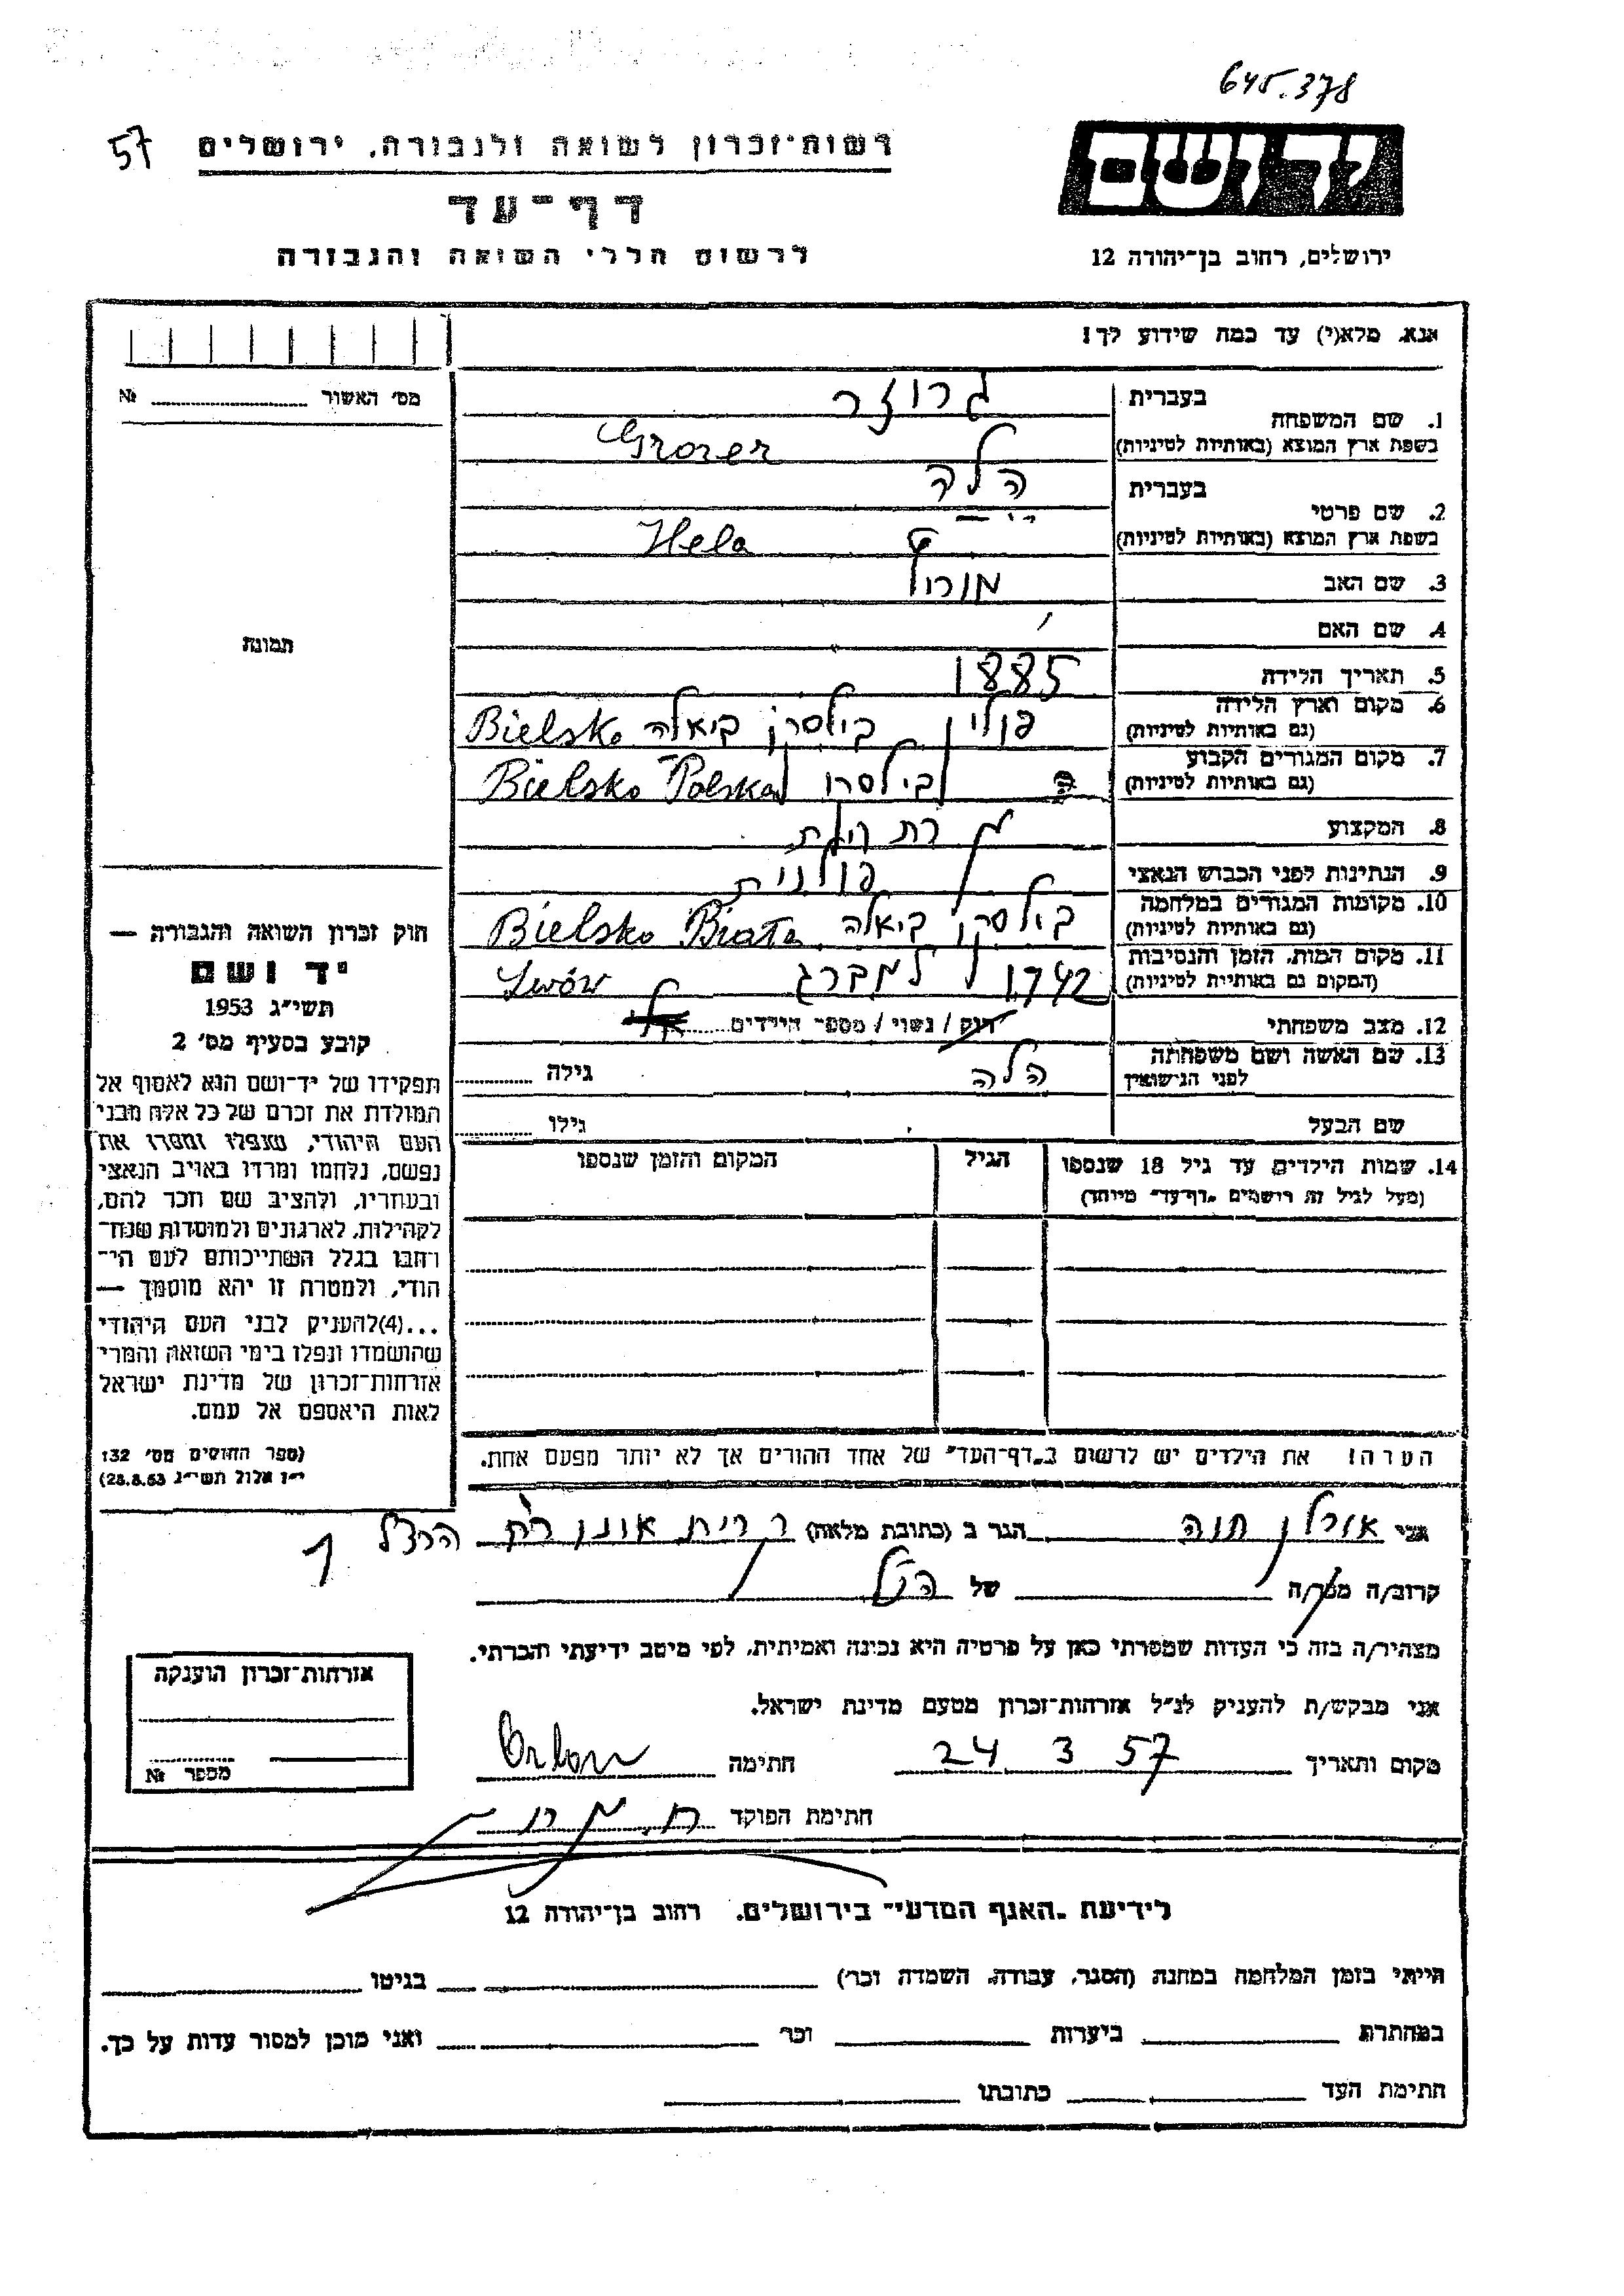 645.378
57
רשות-זכרון לשואה ולגבורה, ירושלים
דף-עד
לרשום חללי השואה והגבורה
ידושם
ירושלים, רחוב בן-יהודה 12
אנא, מלא(י) עד כמה שידוע לך!
מס' האשור № 
1. שם המשפחה
בעברית גרוזר
בשפת ארץ המוצא (באותיות לטיניות) Grozer
2. שם פרטי
בעברית הלה
בשפת ארץ המוצא (באותיות לטיניות) Hela
3. שם האב
4. שם האם
תמונה
5. תאריך הלידה 1885
6. מקום וארץ הלידה פולין בילסקו ביאלה Bielsko
(גם באותיות לטיניות)
7. מקום המגורים הקבוע בילסקו Bielsko Polska
(גם באותיות לטיניות)
8. המקצוע
9. הנתינות לפני הכבוש הנאצי פולנית
10. מקומות המגורים במלחמה בילסקו ביאלה Bielsko Biała
(גם באותיות לטיניות)
11. מקום המות, הזמן והנסיבות 1942 למברג Lwów
(המקום גם באותיות לטיניות)
12. מצב משפחתי רווק / נשוי / מספר הילדים
13. שם האשה ושם משפחתה הלה גילה
לפני הנישואין
שם הבעל גילו
14. שמות הילדים עד גיל 18 שנספו הגיל המקום והזמן שנספו
(מעל לגיל זה רושמים "דף-עד" מיוחד)
הערה! את הילדים יש לרשום ב"דף-העד" של אחד ההורים אך לא יותר מפעם אחת.
חוק זכרון השואה והגבורה —
יד ושם
תשי"ג 1953
קובע בסעיף מס' 2
תפקידו של יד-ושם הוא לאסוף אל
המולדת את זכרם של כל אלה מבני
העם היהודי, שנפלו ומסרו את
נפשם, נלחמו ומרדו באויב הנאצי
ובעוזריו, ולהציב שם וזכר להם,
לקהילות, לארגונים ולמוסדות שנח-
רחבו בגלל השתייכותם לעם הי-
הודי, ולמטרה זו יהא מוסמך —
...(4)להעניק לבני העם היהודי
שהושמדו ונפלו בימי השואה והמרי
אזרחות-זכרון של מדינת ישראל
לאות היאספם אל עמם.
(ספר החוקים מס' 132
י"ז אלול תשי"ג 28.8.53)
אני אורלן חוה הגר ב (כתובת מלאה) קרית אונו רח הרצל
קרוב/ה מכר/ה של הנ"ל
מצהיר/ה בזה כי העדות שמסרתי כאן על פרטיה היא נכונה ואמיתית, לפי מיטב ידיעתי והכרתי.
אני מבקש/ת להעניק לנ"ל אזרחות-זכרון מטעם מדינת ישראל.
מקום ותאריך 24 3 57 חתימה Orlan
חתימת הפוקד
אזרחות-זכרון הוענקה
מספר №
לידיעת "האגף המדעי" בירושלים, רחוב בן-יהודה 12
הייתי בזמן המלחמה במחנה (הסגר, עבודה, השמדה וכו') בגיטו
במחתרת ביערות וכו' ואני מוכן למסור עדות על כך.
חתימת העד כתובתו